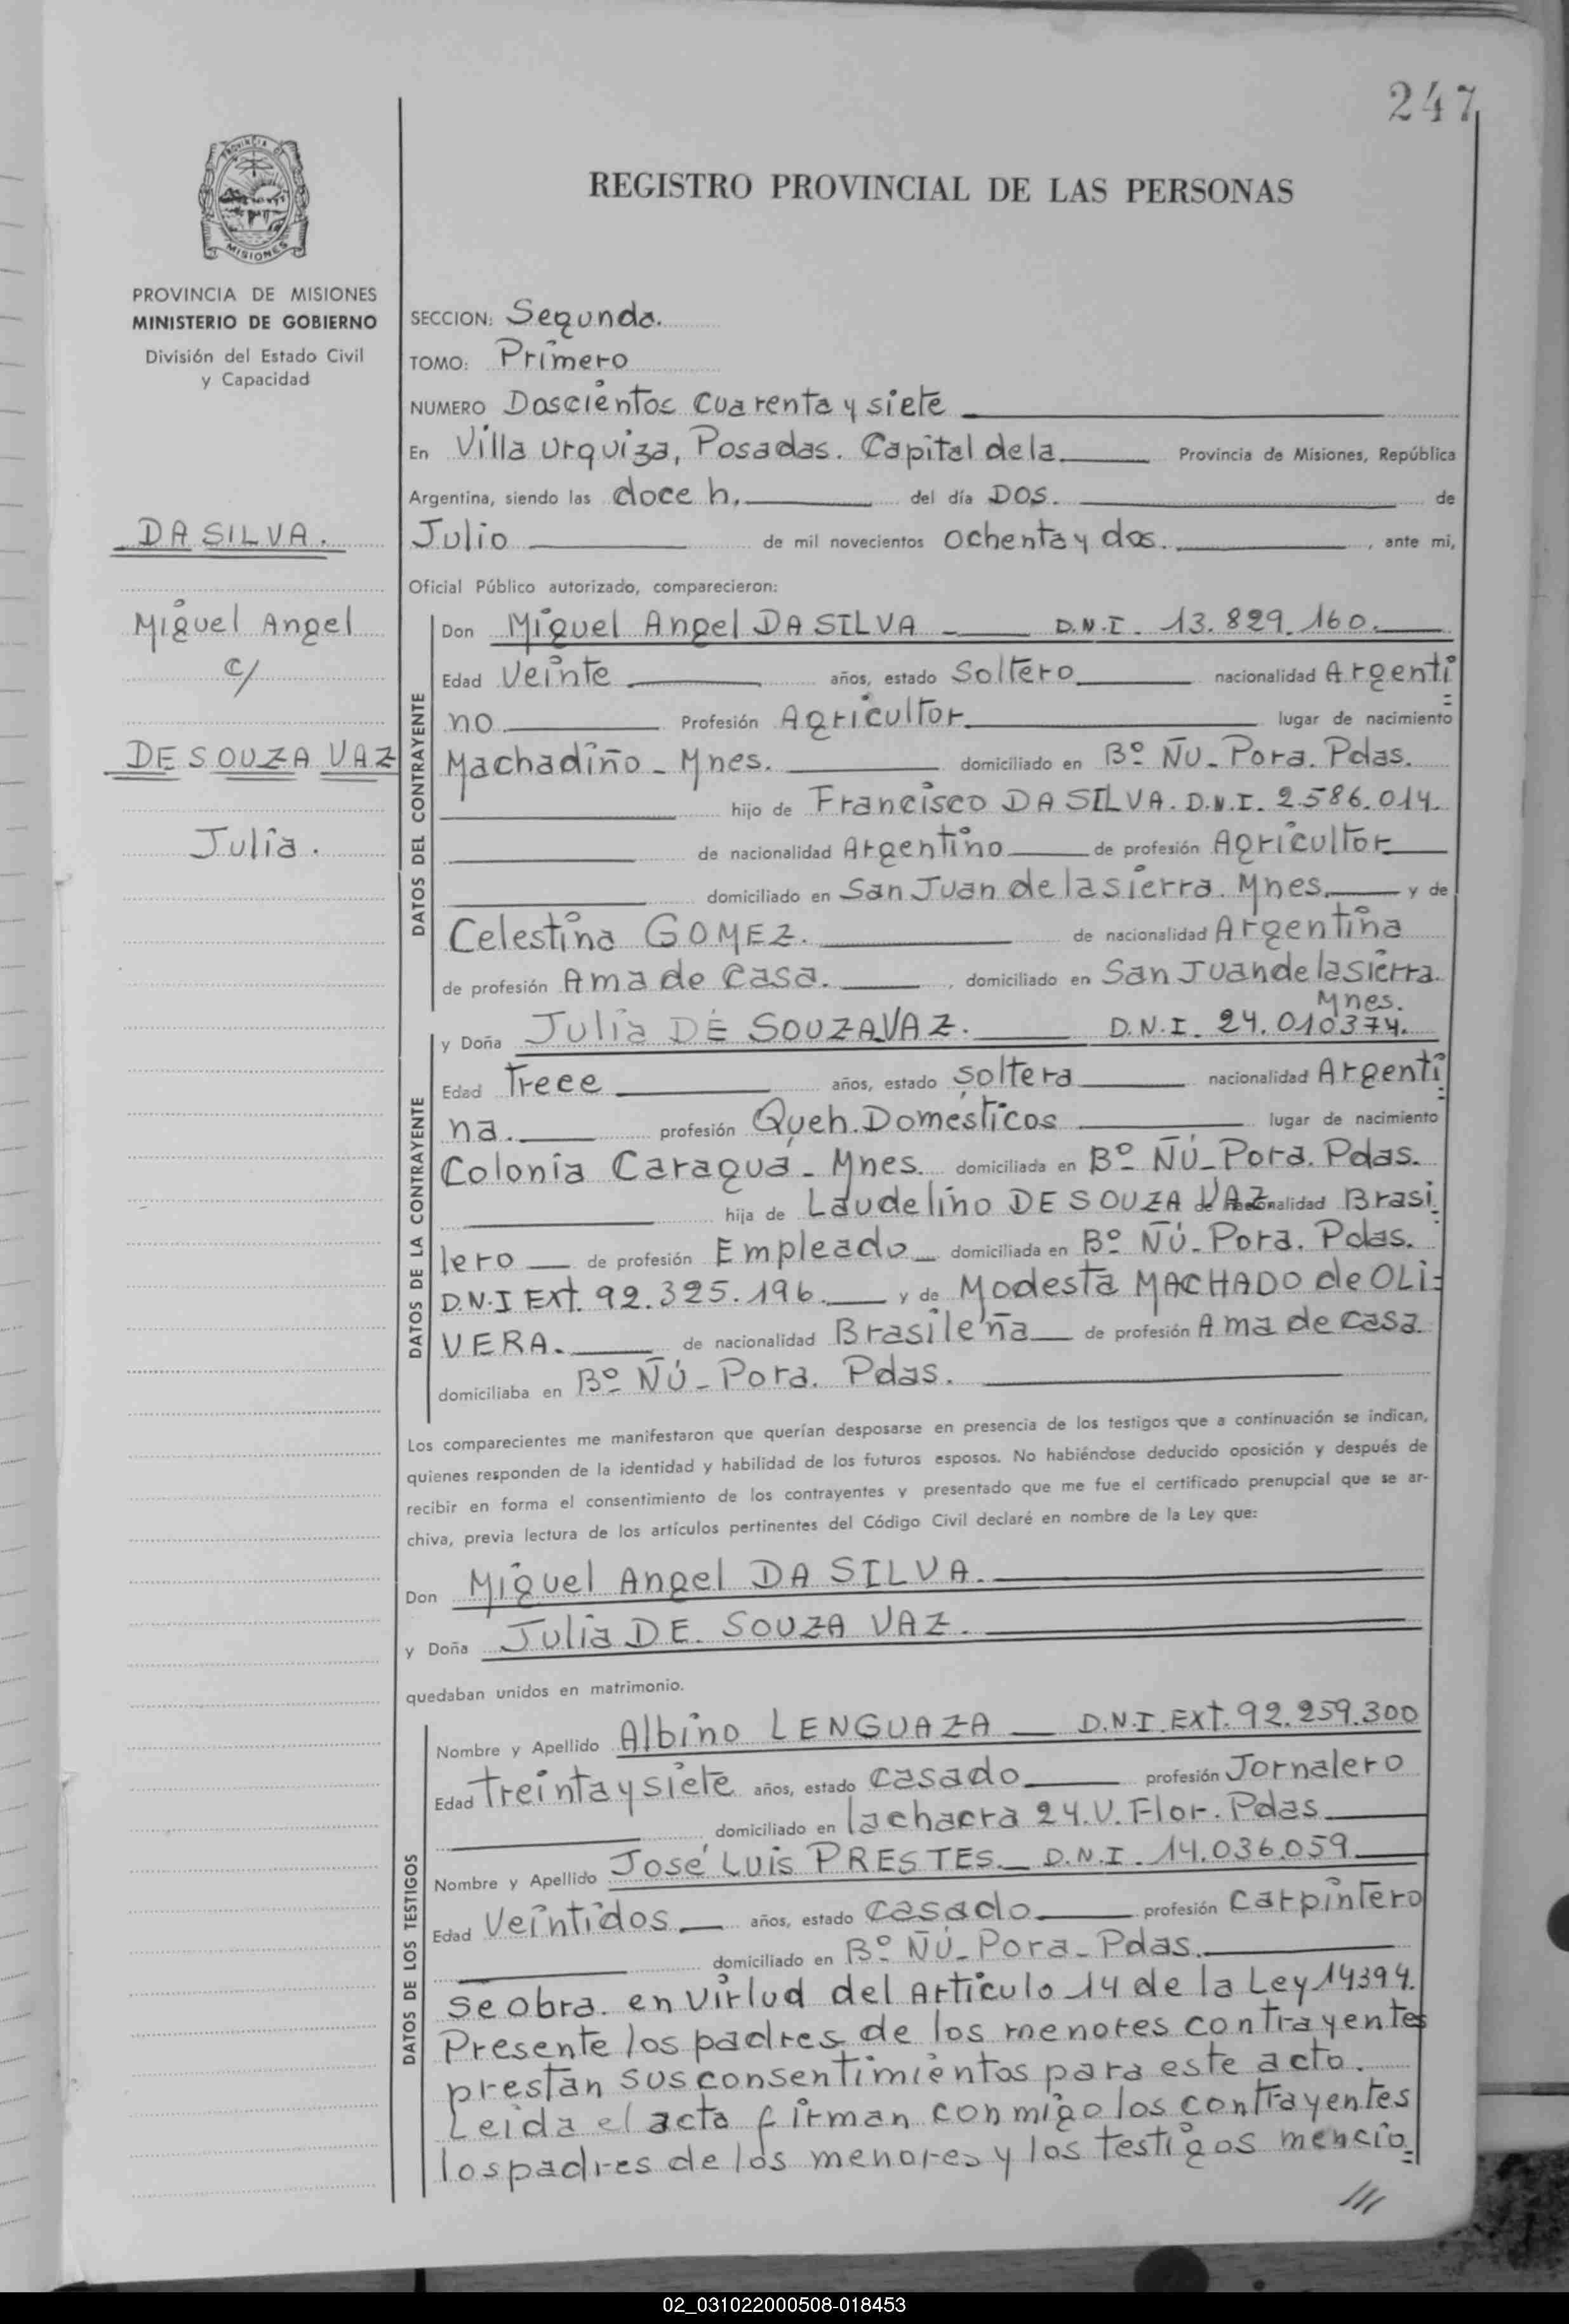 247
REGISTRO PROVINCIAL DE LAS PERSONAS
PROVINCIA DE MISIONES
PROVINCIA DE MISIONES
MINISTERIO DE GOBIERNO
División del Estado Civil
y Capacidad
DA SILVA.
Miguel Angel
c/
DE SOUZA VAZ
Julia.
SECCION: Segunda.
TOMO: Primero
NUMERO Doscientos cuarenta y siete
En Villa Urquiza, Posadas. Capital de la Provincia de Misiones, República
Argentina, siendo las doce h. del día DOS. de
Julio de mil novecientos ochenta y dos. , ante mi,
Oficial Público autorizado, comparecieron:
DATOS DEL CONTRAYENTE
Don Miguel Angel DA SILVA D.N.I. 13.829.160.
Edad Veinte años, estado Soltero nacionalidad Argenti
no Profesión Agricultor lugar de nacimiento
Machadiño - Mnes. domiciliado en Bº ÑU-Pora. Pdas.
hijo de Francisco DA SILVA. D.N.I. 2.586.014.
de nacionalidad Argentino de profesión Agricultor
domiciliado en San Juan de la sierra. Mnes. y de
Celestina GOMEZ. de nacionalidad Argentina
de profesión Ama de Casa. , domiciliado en San Juan de la sierra.
Mnes.
DATOS DE LA CONTRAYENTE
y Doña Julia DE SOUZA VAZ. D.N.I. 24.010374.
Edad Trece años, estado soltera nacionalidad Argenti
na. profesión Queh. Domésticos lugar de nacimiento
Colonia Caraguá - Mnes. domiciliada en Bº ÑÚ-Pora. Pdas.
hija de Laudelino DE SOUZA VAZ de nacionalidad Brasi
lero de profesión Empleado domiciliada en Bº ÑÚ-Pora. Pdas.
D.N.I Ext. 92.325.196. y de Modesta MACHADO de OLI=
VERA. de nacionalidad Brasileña de profesión Ama de casa.
domiciliaba en Bº ÑÚ-Pora. Pdas.
Los comparecientes me manifestaron que querían desposarse en presencia de los testigos que a continuación se indican,
quienes responden de la identidad y habilidad de los futuros esposos. No habiéndose deducido oposición y después de
recibir en forma el consentimiento de los contrayentes y presentado que me fue el certificado prenupcial que se ar-
chiva, previa lectura de los artículos pertinentes del Código Civil declaré en nombre de la Ley que:
Don Miguel Angel DA SILVA.
y Doña Julia DE SOUZA VAZ.
quedaban unidos en matrimonio.
DATOS DE LOS TESTIGOS
Nombre y Apellido Albino LENGUAZA D.N.I. EXt. 92.259.300
Edad treinta y siete años, estado casado profesión Jornalero
domiciliado en la chacra 24. V. Flor. Pdas
Nombre y Apellido José Luis PRESTES. D.N.I. 14.036.059
Edad Veintidos años, estado casado profesión carpintero
domiciliado en Bº ÑÚ-Pora-Pdas.
se obra. en virtud del Articulo 14 de la Ley 14394.
Presente los padres de los menores contrayentes
prestan sus consentimientos para este acto.
Leida el acta firman conmigo los contrayentes
los padres de los menores y los testigos mencio=
///
02_031022000508-018453